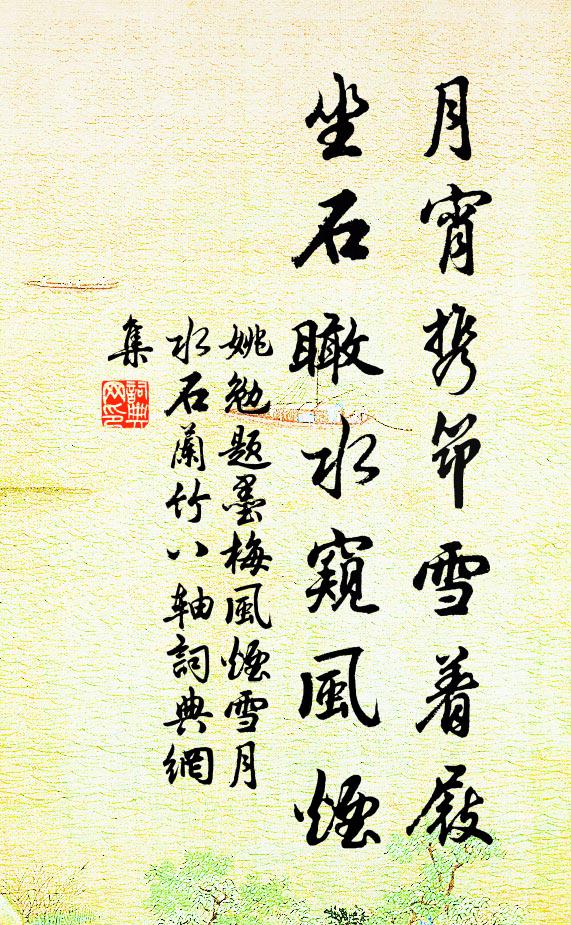 月宵携笻雪着屐
坐石瞰水窥風煙
姚勉题墨梅風煙雪月
水石蘭竹八轴詞典網
集
詞典
网印